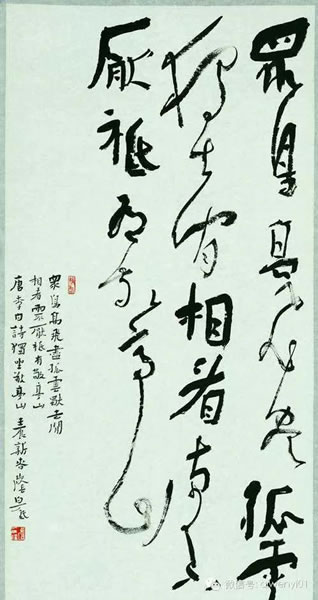 眾鳥高飛盡孤雲
獨去閑相看兩不
厭祗有敬亭山
眾鳥高飛盡孤雲獨去閒
相看兩不厭祗有敬亭山
唐李白詩獨坐敬亭山
微信号: qiwenyi01